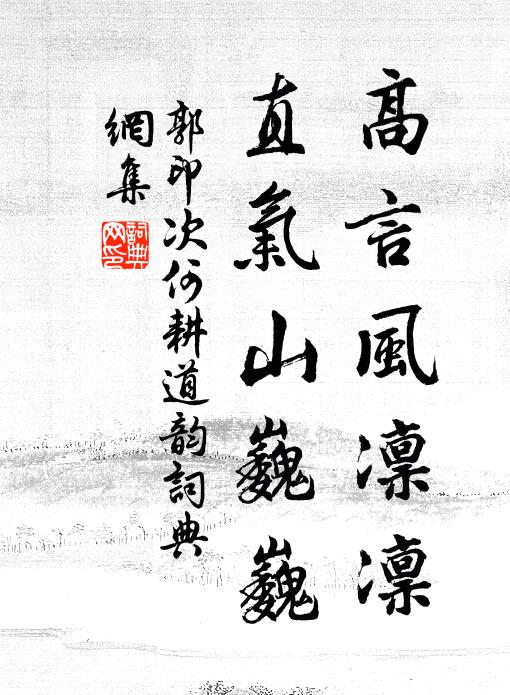 高言風凜凜
直氣山巍巍
郭印次何耕道韵詞典
網集
詞典
网印